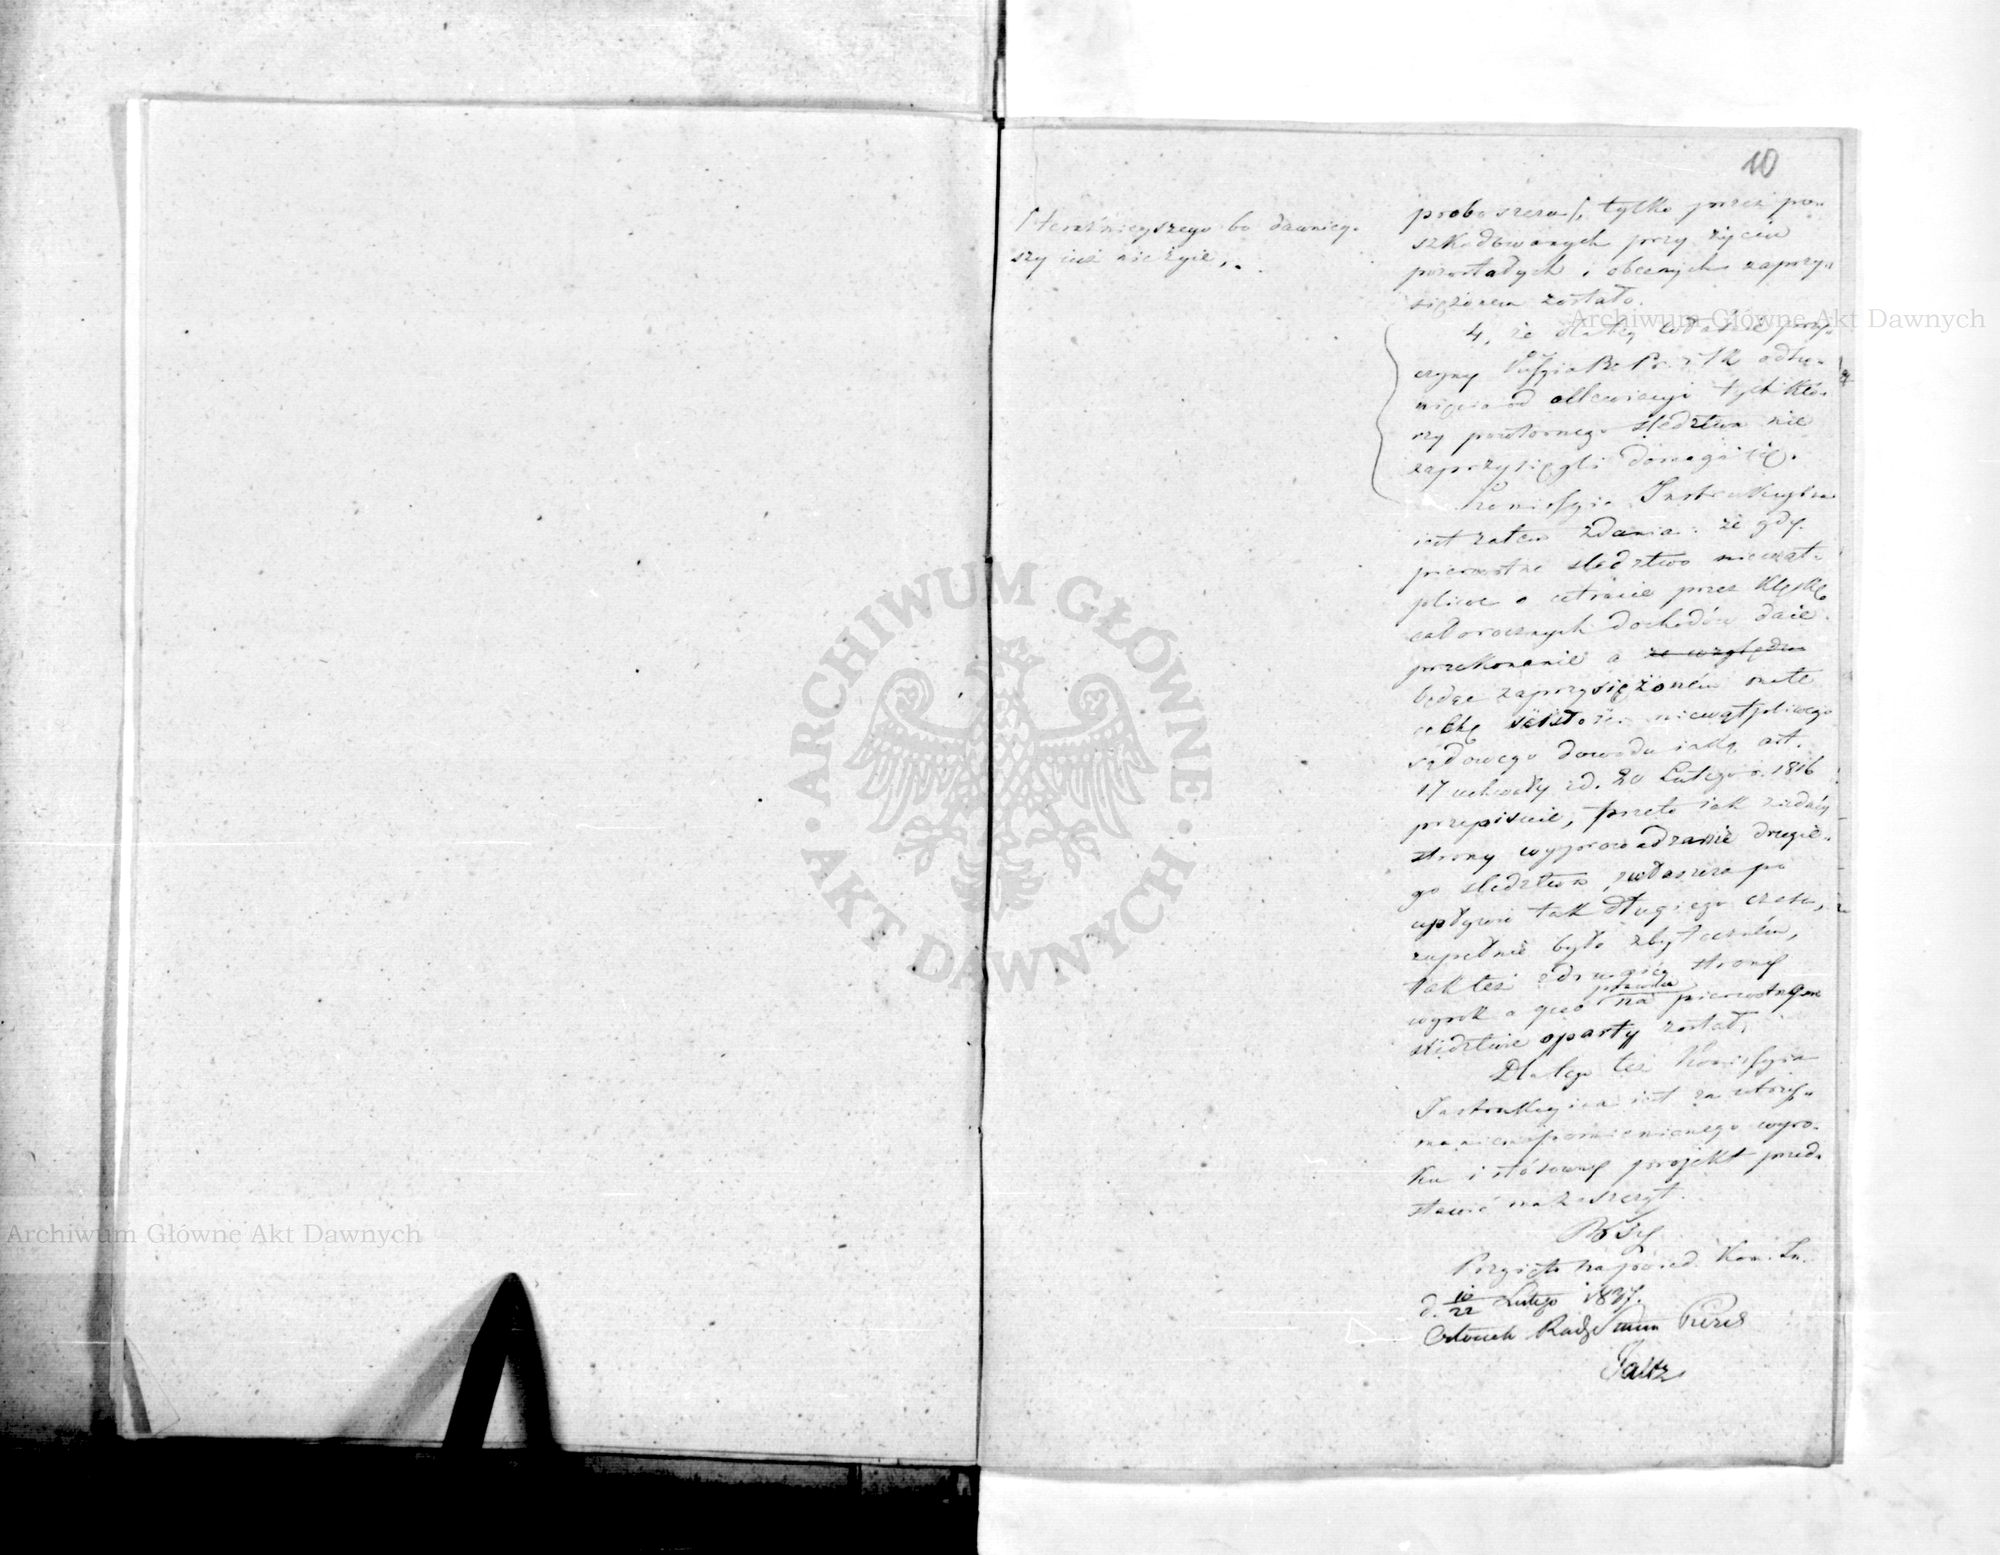 10
teraźnieyszego bo dawniey-
szy iuż nie żyie,
proboszcza, tylko przez po-
szkodowanych przy życiu
pozostałych i obecnych zaprzy-
siężonem zostało.
4, że dla tey właśnie przy-
czyny
tych któ-
rzy powtornego śledztwa nie
zaprzysięgli domaga się.
Kommissyia Instrukcyina
iest zatem zdania: że gdy
pierwotne śledztwo niewąt-
pliwe o utracie przez klęskę
całorocznych dochodów daie
przekonanie a ze względu
będąc zaprzysiężonem ma te
niewątpliwego
sądowego dowodu iaką art.
17 uchwały z d. 20 Lutego r. 1816
przepisuie, przeto iak z iedney
strony wyprowadzanie drugie-
go śledztwa, zwłaszcza po
upływie tak długiego czasu,
zupełnie było zbytecznem,
tak też z drugiéy strony
wyrok a quo na pierwotnym
prawnie
śledztwie oparty został.
Dla tego też Kommissyia
Instrukcyina iest za utrzy-
maniem wspomnionego wyro-
ku i stósowny projekt przed-
stawić ma zaszczyt.
Przyięto na posied. Kom. In.
d. 10/22 Lutego 1837.
Członek Radzca Stanu Prezes
Faltz
Archiwum Główne Akt Dawnych
Archiwum Główne Akt Dawnych
ARCHIWUM GŁÓWNE
AKT DAWNYCH